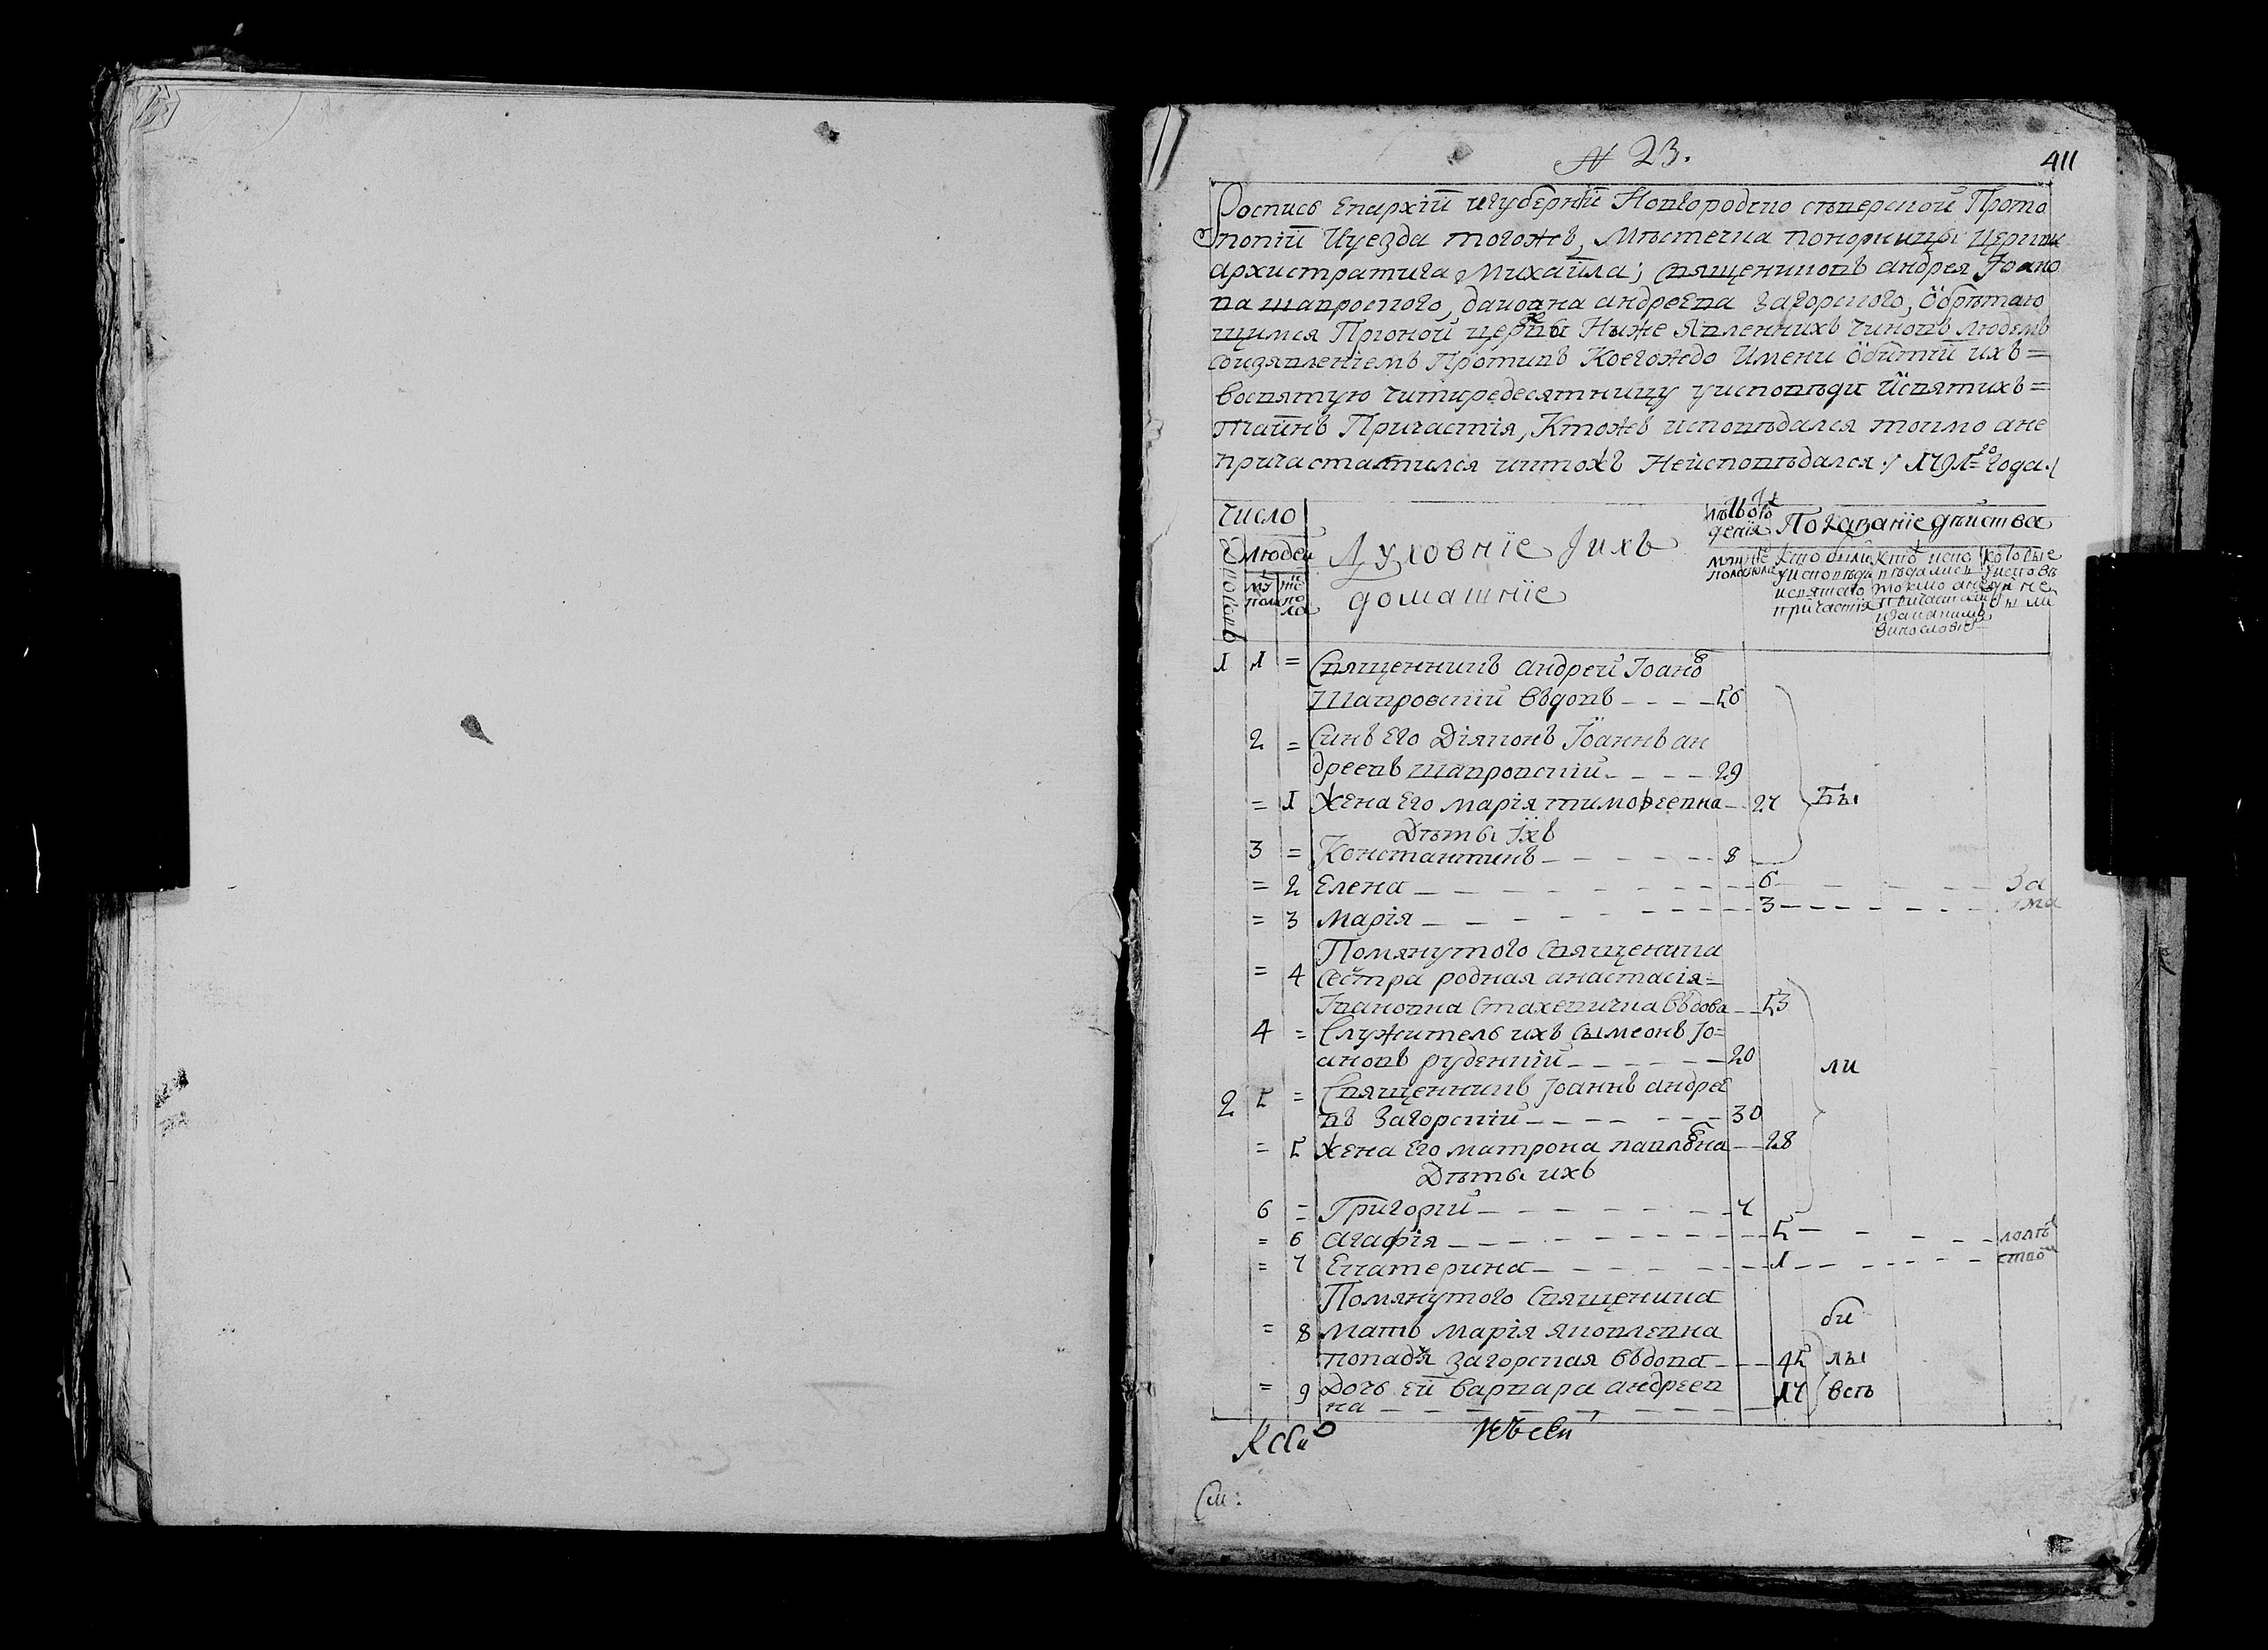 № 23.
411
Роспись Епархїи игубернїи Новгородско сѣверской Прото
попїи Иуезда тогожъ, Мѣстечка понорницы Церкви
архистратига Михаила; Священниковъ андрея Іоано
ва шавроского, да иоанна андреева Загорского, Обрѣтаю
щимся При оной церкви Ниже Явленнихъ чиновъ людемъ
соизявленіемъ Противъ Коегождо Имени Обитїи ихъ =
восвятую читиредесятницу уисповѣди Исвятихъ =
Таинъ Причастія, Ктожъ исповѣдался токмо ане
причастатился иктожъ Неисповѣдался :/ 1791=го года:/
число
людей
Дворовъ
му пола
же по ла
Духовнїе Іихъ
домашнїе
лѣта отъ рож
денїя
Показанїе дѣйства
мужеска пола
женска
Кто были
уисповѣди
исвятаго
причастія
Кто испо
вѣдались
токмо ане
причастил
изаканимъ
винословїе
которые
уисповѣ
ди не
были
1 1 = Священникъ андрей Іоано
Шавровскїй вѣдовъ 56
2 = Синъ его Діяконъ Іоаннъ ан
дреевъ Шавровскїй 29
= 1 Жена Его марія тимоѳеевна 27 Бы
Дѣты їхъ
3 = Константинъ 8
= 2 Елена 6 За
= 3 Марія 3 ма
Помянутого Священика
= 4 Сестра родная анастасія =
Івановна Стахевична вѣдова 53
4 = Служитель ихъ сымеонъ Іо=
ановъ руденкїй 20
ли
2 5 = Священникъ Іоаннъ андрее
въ Загорскїй 30
= 5 Жена Его матрона павловна 28
Дѣты ихъ
6 = Григорїй 7
= 6 Агафїя 5 лолѣ
= 7 Екатерина 1 ство
Помянутого Священика
= 8 Мать Марія яковлевна
попадя Загорская вѣдова 45
би
лы
= 9 Дочь ей варвара андреев
на 17
всѣ
Къ сей
См: